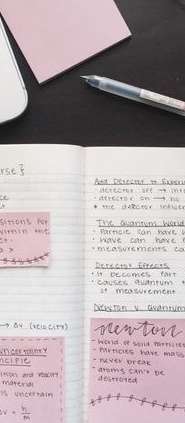 rse }
ce
sitions for
within the
et.
→ Δv (velocity)
ncertainty
inciple
ition and velocity
material
is uncertain
Δv = h/m
Add Detector to Experi
- detector off → in
- detector on → no
* the detector influe
The Quantum World
- Particle can have w
- Wave can have
- measurements ca
Detector Effects
- it becomes part
- causes quantum
it measurement
Newton v. Quan
newton
- World of solid particles
- Particles have mass
- never break
- atoms can't be
destroyed